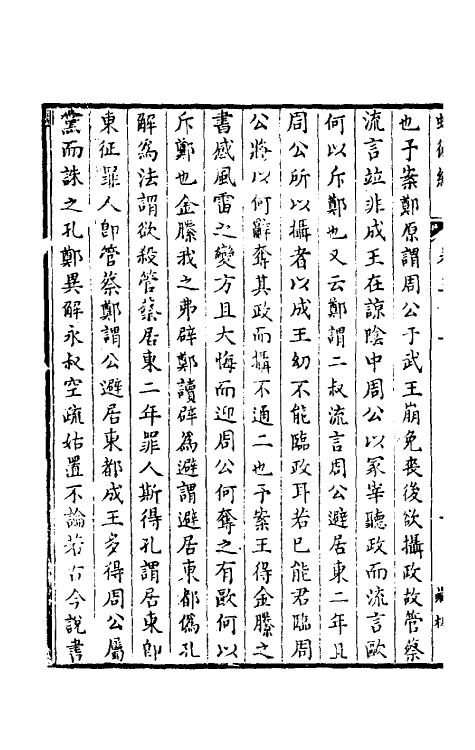 也予案鄭原謂周公于武王崩免喪後欲攝政故管蔡
流言竝非成王在諒陰中周公以冢宰聽政而流言歐
何以斥鄭也又云鄭謂二叔流言周公避居東二年且
周公所以攝者以成王幼不能臨政耳若已能君臨周
公將以何辭奪其政而攝不通二也予案王得金縢之
書感風雷之變方且大悔而迎周公何奪之有歐何以
斥鄭也金縢我之弗辟鄭讀辟為避謂避居東都偽孔
解為法謂欲殺管蔡居東二年罪人斯得孔謂居東即
東征罪人即管蔡鄭謂公避居東都成王多得周公屬
黨而誅之孔鄭異解永叔空疏姑置不論若古今說書